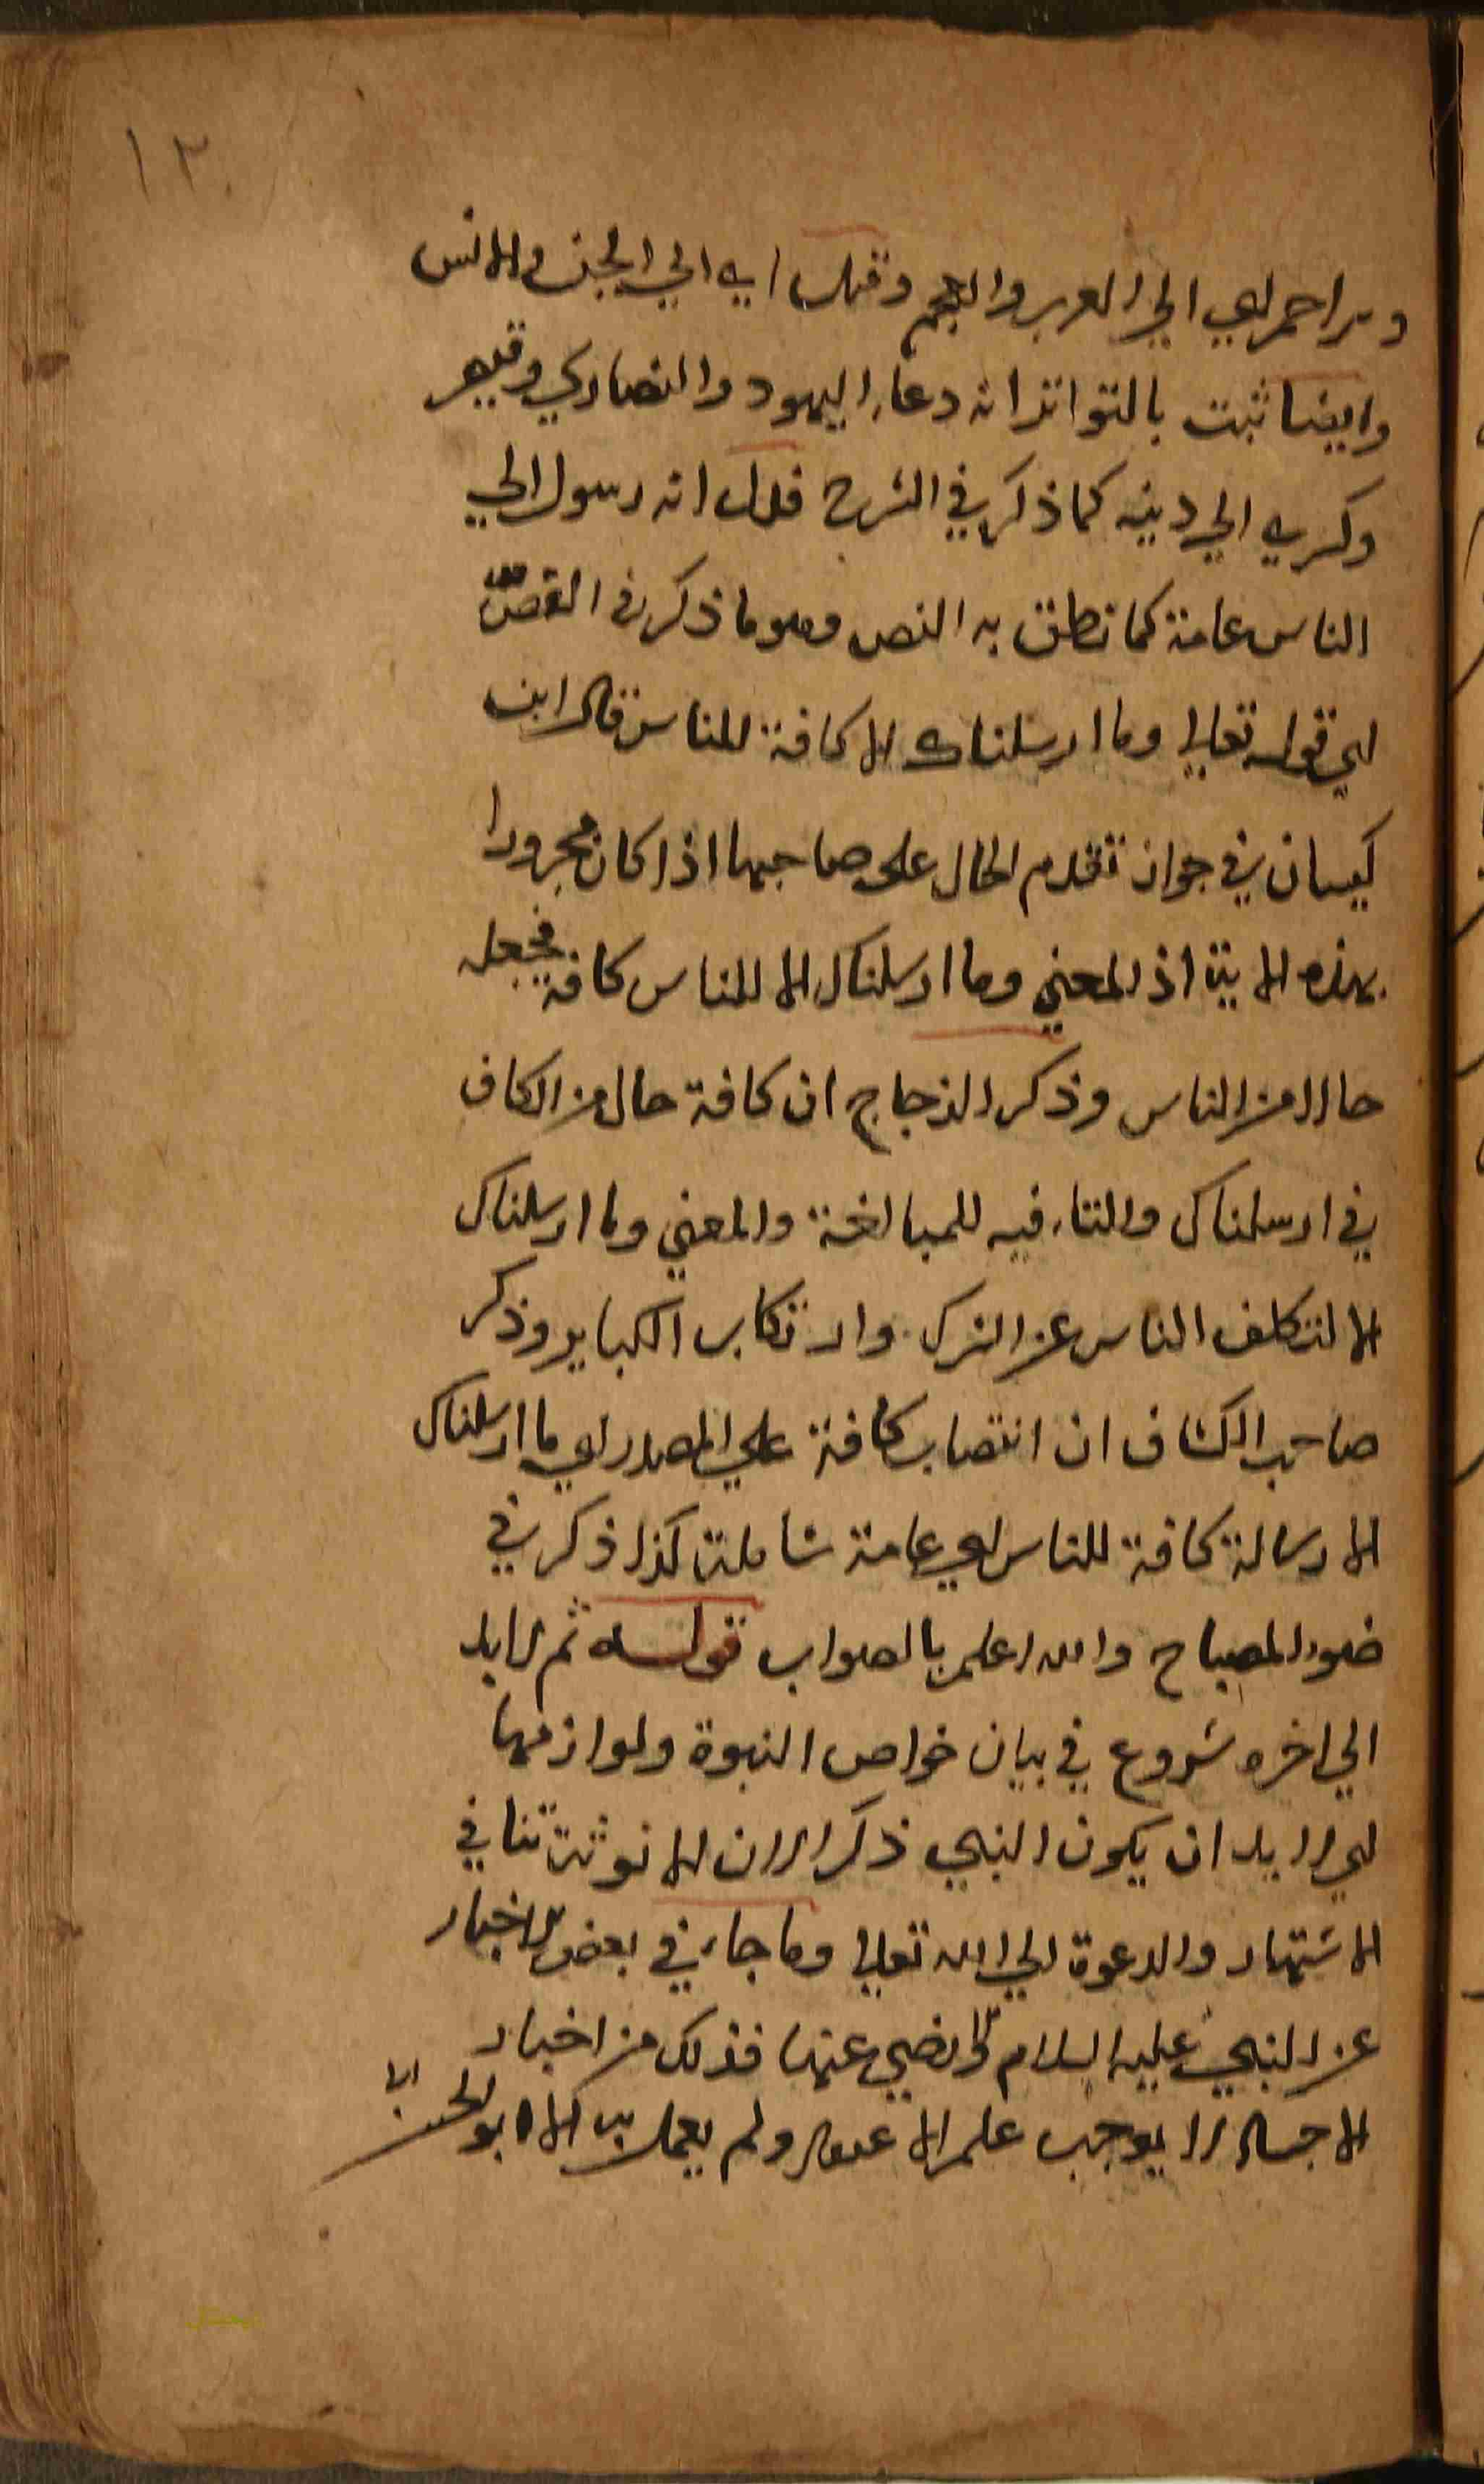 ١٣
احمر اي الي العرب والعجم وقيل اي الي الجن والانس
وايضا ثبت بالتواتر انه دعاء اليهود والنصاري وقيصر
وكسري الي دينه كما ذكر في الشرح فدل انه رسول الي
الناس عامة كما نطق به النص وهو ما ذكر في القصص
اي قوله تعالي وما ارسلناك الا كافة للناس قال ابن
كيسان في جواز تقدم الحال علي صاحبها اذا كان مجرورا
بهذه الاية اذ المعني وما ارسلناك الا للناس كافة فجعله
حالا من الناس وذكر الزجاج ان كافة حال من الكاف
في ارسلناك والتاء فيه للمبالغة والمعني وما ارسلناك
الا لتكف الناس عن الشرك وارتكاب الكباير وذكر
صاحب الكشاف ان انتصاب كافة علي المصدر اي ما ارسلناك
الا رسالة كافة للناس اي عامة شاملة كذا ذكر في
ضوء المصباح والله اعلم بالصواب قوله ثم لا بد
الي اخره شروع في بيان خواص النبوة ولوازمها
اي لا بد ان يكون النبي ذكرا لان الانوثة تنافي
الاشتهار والدعوة الي الله تعالي وما جاء في بعض الاخبار
عن النبي عليه السلام رضي عنها فذلك من اخبار
الاحاد لا يوجب علم الا عمل ولم يعمل به الا ابو الحسن